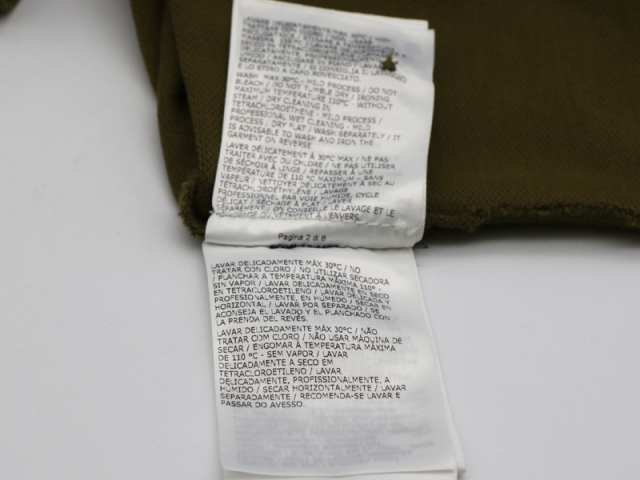 LAVARE DELICATAMENTE MAX 30°C / NON
TRATTARE CON
ASCIUGARE
SEPARATAMENTE / SI CONSIGLIA IL LAVAGGIO
E LO STIRO A CAPO ROVESCIATO.
WASH MAX 30°C - MILD PROCESS / DO NOT
BLEACH / DO NOT TUMBLE DRY / IRONING
MAXIMUM TEMPERATURE 110°C - WITHOUT
STEAM / DRY CLEANING IN
TETRACHLOROETHENE - MILD PROCESS /
PROFESSIONAL WET CLEANING - MILD
PROCESS / DRY FLAT / WASH SEPARATELY / IT
IS ADVISABLE TO WASH AND IRON THE
GARMENT ON REVERSE
LAVER DÉLICATEMENT À 30°C MAX / NE PAS
TRAITER AVEC DU CHLORE / NE PAS UTILISER
DE SÉCHOIR À LINGE / REPASSER À UNE
TEMPÉRATURE DE 110 °C MAXIMUM - SANS
VAPEUR / NETTOYER DÉLICATEMENT À SEC AU
TÉTRACHLOROÉTHYLÈNE / LAVAGE
PROFESSIONNEL PAR VOIE HUMIDE, CYCLE
DÉLICAT / SÉCHAGE À PLAT / LAVER
SÉPARÉMENT / ON CONSEILLE LE LAVAGE ET LE
REPASSAGE DU VÊTEMENT À L'ENVERS.
Pagina 2 di 6
LAVAR DELICADAMENTE MÁX 30°C / NO
TRATAR CON CLORO / NO UTILIZAR SECADORA
/ PLANCHAR A TEMPERATURA MÁXIMA 110° -
SIN VAPOR / LAVAR DELICADAMENTE EN SECO
EN TETRACLOROETILENO / LAVAR DELICADA Y
PROFESIONALMENTE, EN HÚMEDO / SECAR EN
HORIZONTAL / LAVAR POR SEPARADO / SE
ACONSEJA EL LAVADO Y EL PLANCHADO CON
LA PRENDA DEL REVÉS.
LAVAR DELICADAMENTE MÁX 30°C / NÃO
TRATAR COM CLORO / NÃO USAR MÁQUINA DE
SECAR / ENGOMAR À TEMPERATURA MÁXIMA
DE 110 °C - SEM VAPOR / LAVAR
DELICADAMENTE A SECO EM
TETRACLOROETILENO / LAVAR
DELICADAMENTE, PROFISSIONALMENTE, A
HÚMIDO / SECAR HORIZONTALMENTE / LAVAR
SEPARADAMENTE / RECOMENDA-SE LAVAR E
PASSAR DO AVESSO.